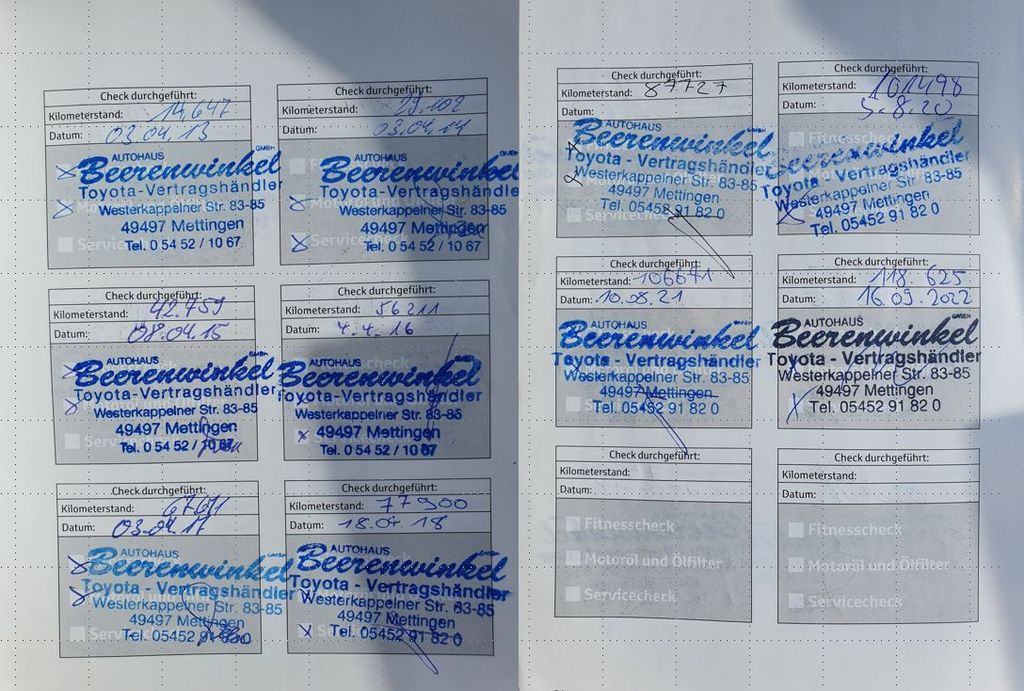 Check durchgeführt:
Kilometerstand: 14.647
Datum: 03.04.13
AUTOHAUS
Beerenwinkel GMBH
Toyota-Vertragshändler
Westerkappelner Str. 83-85
49497 Mettingen
Tel. 0 54 52 / 10 67
Check durchgeführt:
Kilometerstand: 29.102
Datum: 03.04.14
AUTOHAUS
Beerenwinkel
Toyota-Vertragshändler
Westerkappelner Str. 83-85
49497 Mettingen
Servicecheck
Tel. 0 54 52 / 10 67
Check durchgeführt:
Kilometerstand: 42.759
Datum: 08.04.15
AUTOHAUS
Beerenwinkel GMBH
Toyota-Vertragshändler
Westerkappelner Str. 83-85
49497 Mettingen
Tel. 0 54 52 / 10 67
Check durchgeführt:
Kilometerstand: 56211
Datum: 4.4.16
AUTOHAUS
Beerenwinkel GMBH
Toyota-Vertragshändler
Westerkappelner Str. 83-85
49497 Mettingen
Tel. 0 54 52 / 10 67
Check durchgeführt:
Kilometerstand:
Datum: 03.04.17
AUTOHAUS
Beerenwinkel GMBH
Toyota - Vertragshändler
Westerkappelner Str. 83-85
49497 Mettingen
Tel. 05452 91 82 0
Check durchgeführt:
Kilometerstand: 77900
Datum: 18.04.18
AUTOHAUS
Beerenwinkel GMBH
Toyota - Vertragshändler
Westerkappelner Str. 83-85
49497 Mettingen
Tel. 05452 91 82 0
Check durchgeführt:
Kilometerstand: 87727
Datum:
AUTOHAUS
Beerenwinkel GMBH
Toyota - Vertragshändler
Westerkappelner Str. 83-85
49497 Mettingen
Tel. 05452 91 82 0
Check durchgeführt:
Kilometerstand: 101498
Datum: 5.8.20
Fitnesscheck
Beerenwinkel
Toyota - Vertragshändler
Westerkappelner Str. 83-85
49497 Mettingen
Tel. 05452 91 82 0
Check durchgeführt:
Kilometerstand: 106671
Datum: 10.08.21
AUTOHAUS
Beerenwinkel GMBH
Toyota - Vertragshändler
Westerkappelner Str. 83-85
49497 Mettingen
Tel. 05452 91 82 0
Check durchgeführt:
Kilometerstand: 118.625
Datum: 16.09.2022
AUTOHAUS
Beerenwinkel GMBH
Toyota - Vertragshändler
Westerkappelner Str. 83-85
49497 Mettingen
Tel. 05452 91 82 0
Check durchgeführt:
Kilometerstand:
Datum:
Fitnesscheck
Motoröl und Ölfilter
Servicecheck
Check durchgeführt:
Kilometerstand:
Datum:
Fitnesscheck
Motoröl und Ölfilter
Servicecheck